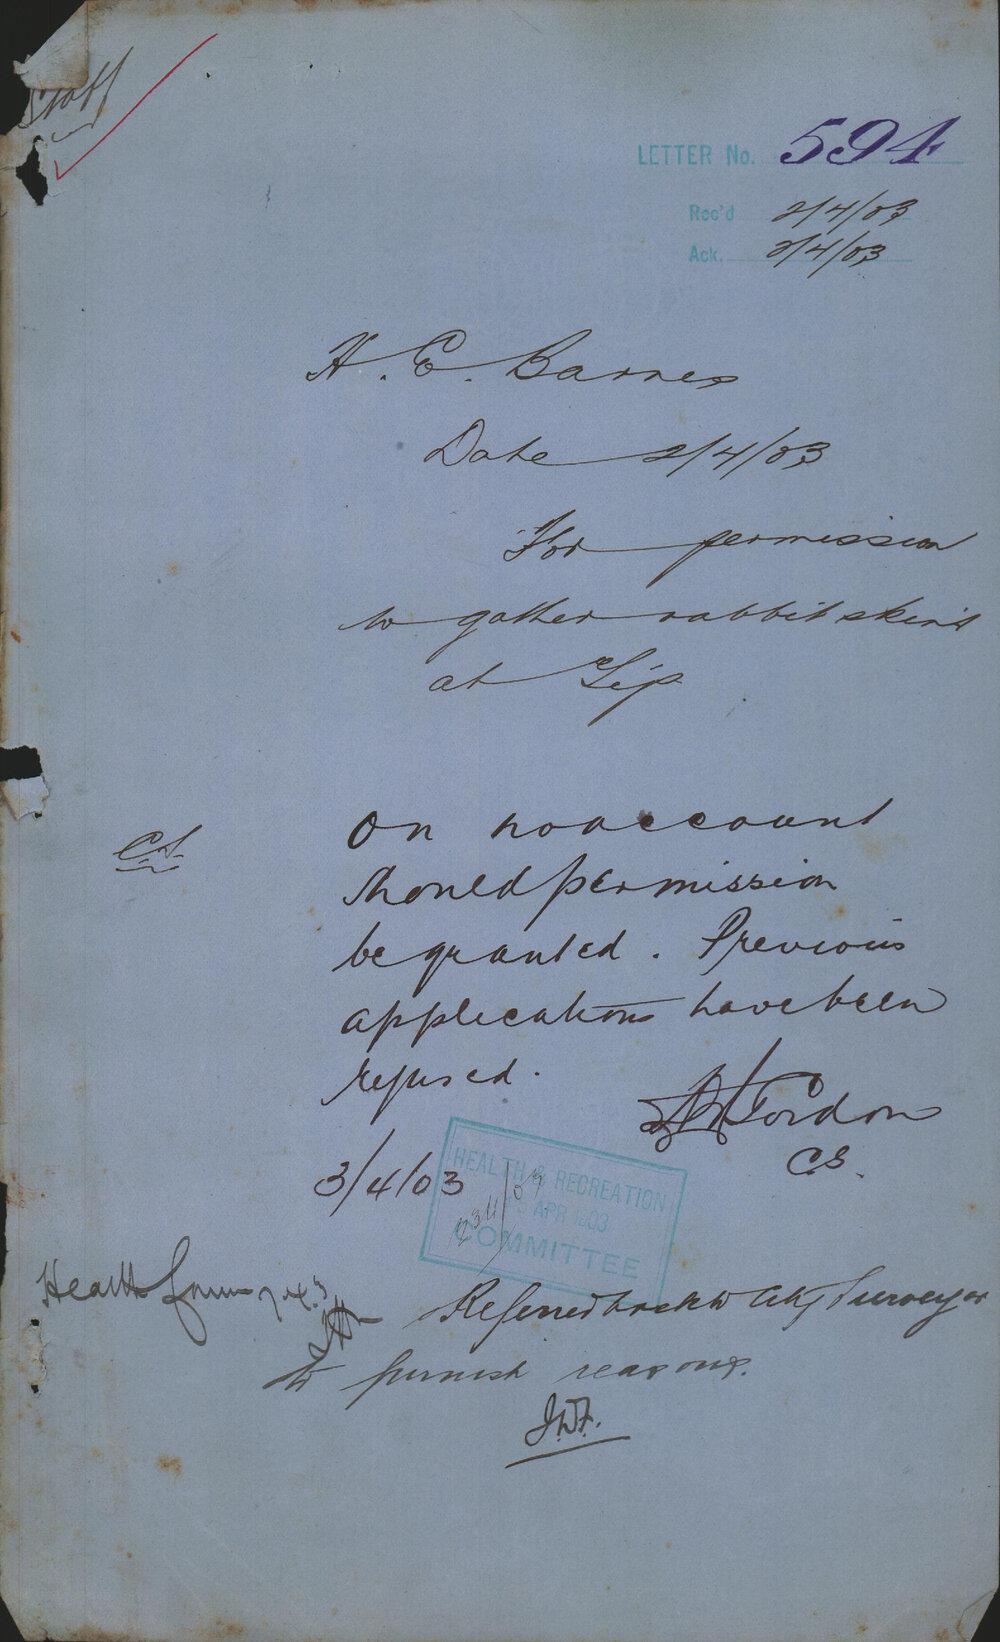 Staff
LETTER No. 594
Rec'd 2/4/03
Ack. 2/4/03
H. E. Barnes
Date 2/4/03
For permission
to gather rabbit skins
at Tip
CS
On no account
should permission
be granted. Previous
applications have been
refused.
Gordon
CS.
3/4/03
HEALTH & RECREATION
APR 1903
COMMITTEE
Health
Referred back to City Surveyor
to furnish reasons.